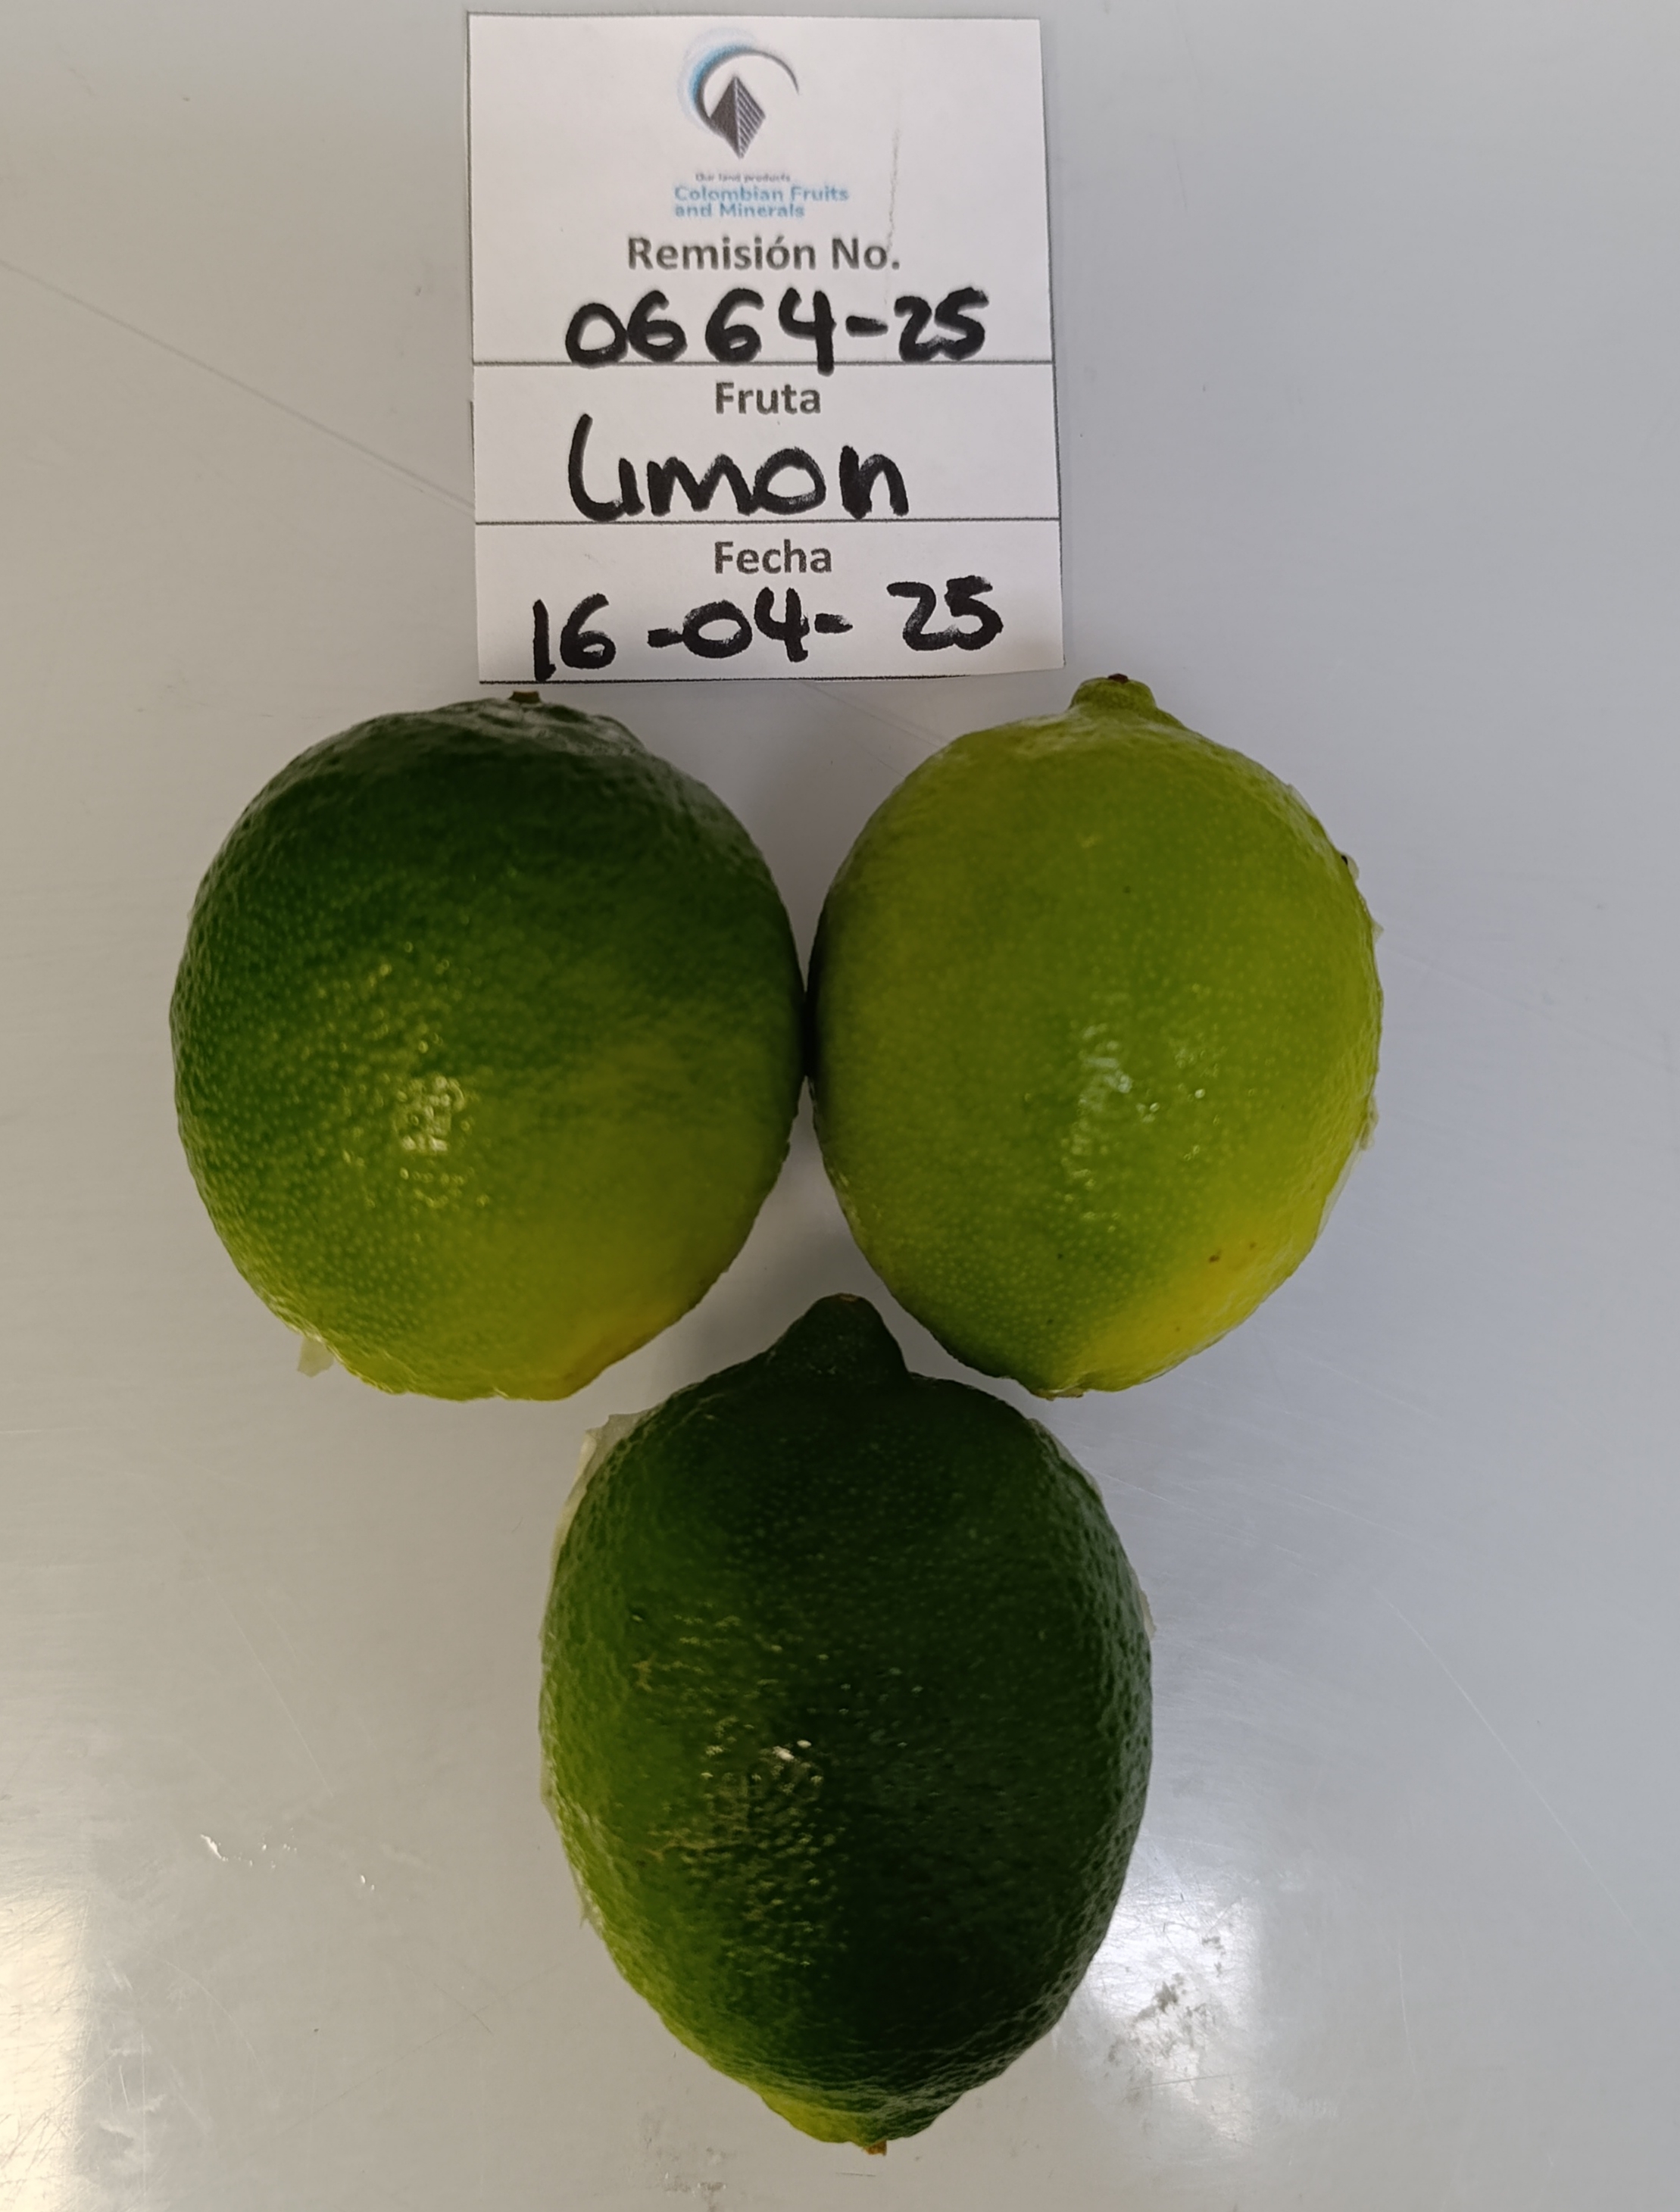 Our land products
Colombian Fruits
and Minerals
Remisión No.
0664-25
Fruta
Limon
Fecha
16-04-25